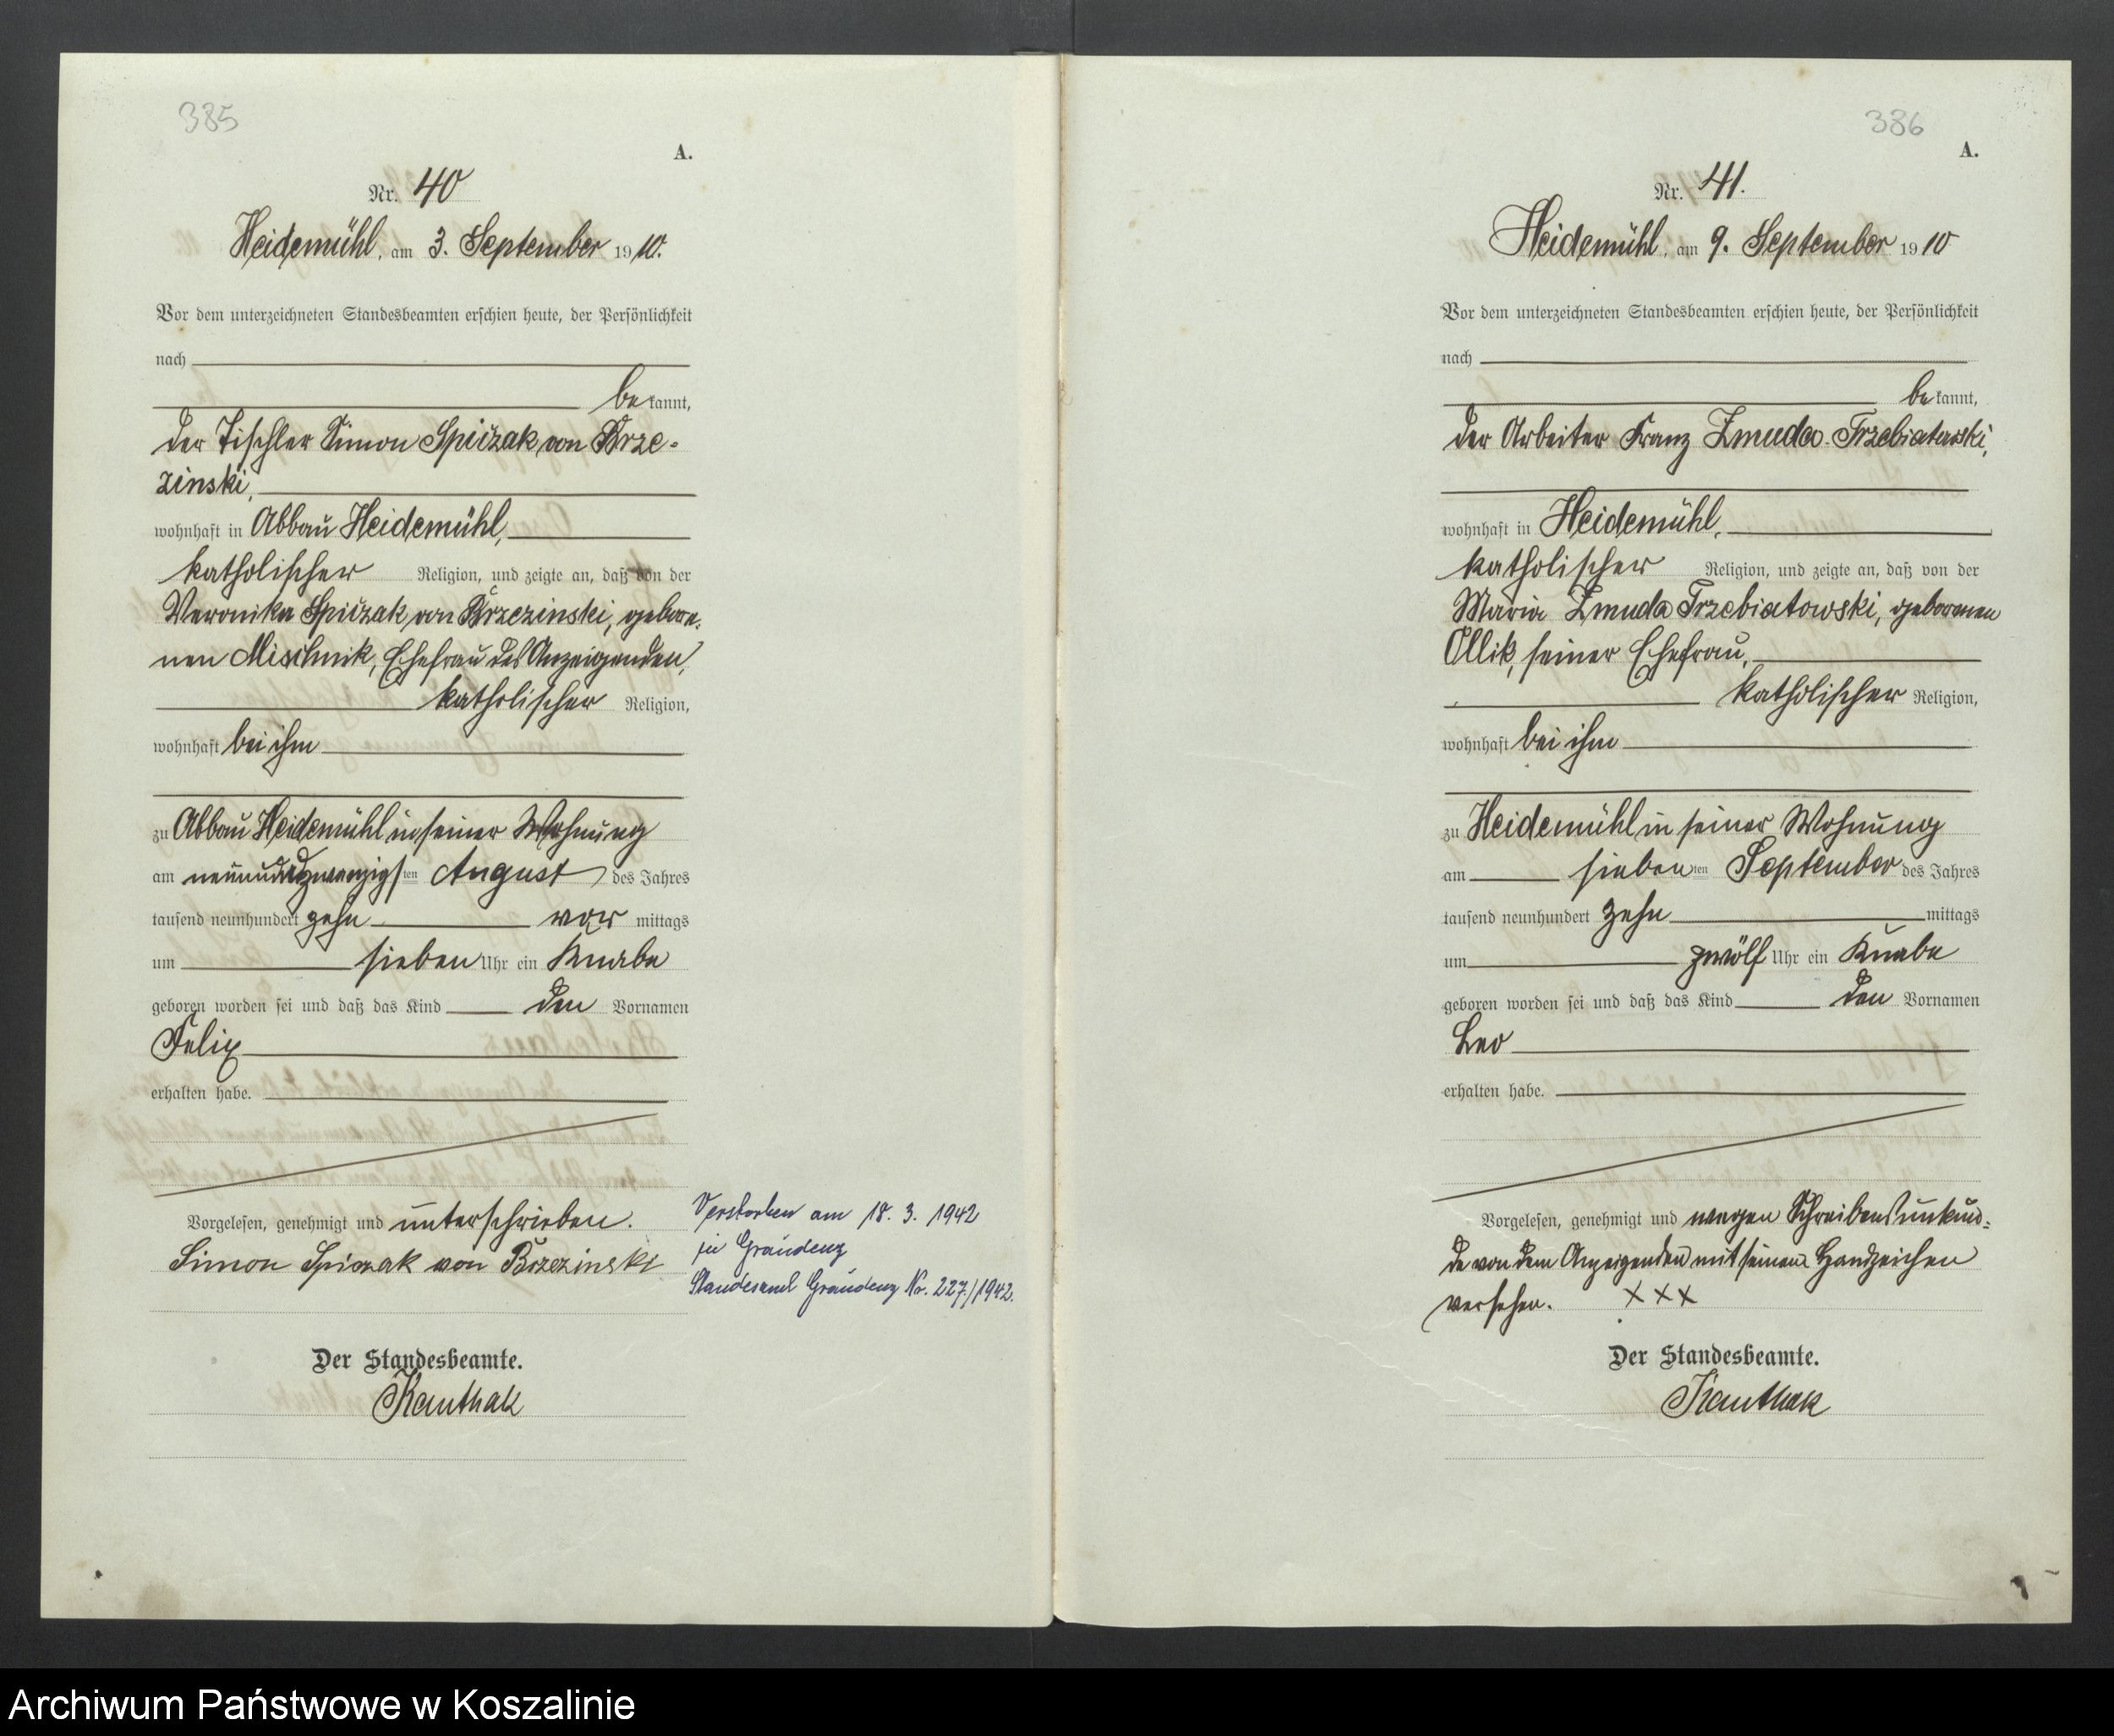 385
A.
Nr. 40
Heidemühl, am 3. September 1910.
Vor dem unterzeichneten Standesbeamten erschien heute, der Persönlichkeit
nach
bekannt,
der Tischler Simon Spiczak von Brze-
zinski,
wohnhaft in Abbau Heidemühl,
katholischer Religion, und zeigte an, daß von der
Veronika Spiczak von Brzezinski, gebore-
nen Mischnik, Ehefrau des Anzeigenden,
katholischer Religion,
wohnhaft bei ihm
zu Abbau Heidemühl in seiner Wohnung
am neunundzwanzigsten August des Jahres
tausend neunhundert zehn vor mittags
um sieben Uhr ein Knabe
geboren worden sei und daß das Kind den Vornamen
Felix
erhalten habe.
Vorgelesen, genehmigt und unterschrieben.
Simon Spiczak von Brzezinski
Der Standesbeamte.
Kauthak
Verstorben am 18. 3. 1942
in Graudenz
Standesamt Graudenz Nr. 227/1942.
386
A.
Nr. 41.
Heidemühl, am 9. September 1910
Vor dem unterzeichneten Standesbeamten erschien heute, der Persönlichkeit
nach
bekannt,
der Arbeiter Franz Zmuda-Trzebiatowski,
wohnhaft in Heidemühl,
katholischer Religion, und zeigte an, daß von der
Maria Zmuda Trzebiatowski, geborenen
Ollik, seiner Ehefrau,
katholischer Religion,
wohnhaft bei ihm
zu Heidemühl in seiner Wohnung
am siebenten September des Jahres
tausend neunhundert zehn mittags
um zwölf Uhr ein Knabe
geboren worden sei und daß das Kind den Vornamen
Leo
erhalten habe.
Vorgelesen, genehmigt und wegen Schreibensunkun-
de von dem Anzeigenden mit seinem Handzeichen
versehen. XXX
Der Standesbeamte.
Kauthak
Archiwum Państwowe w Koszalinie